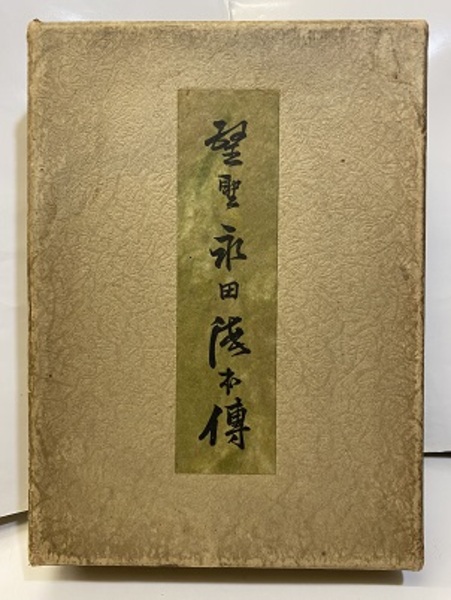 毉聖永田徳本傳